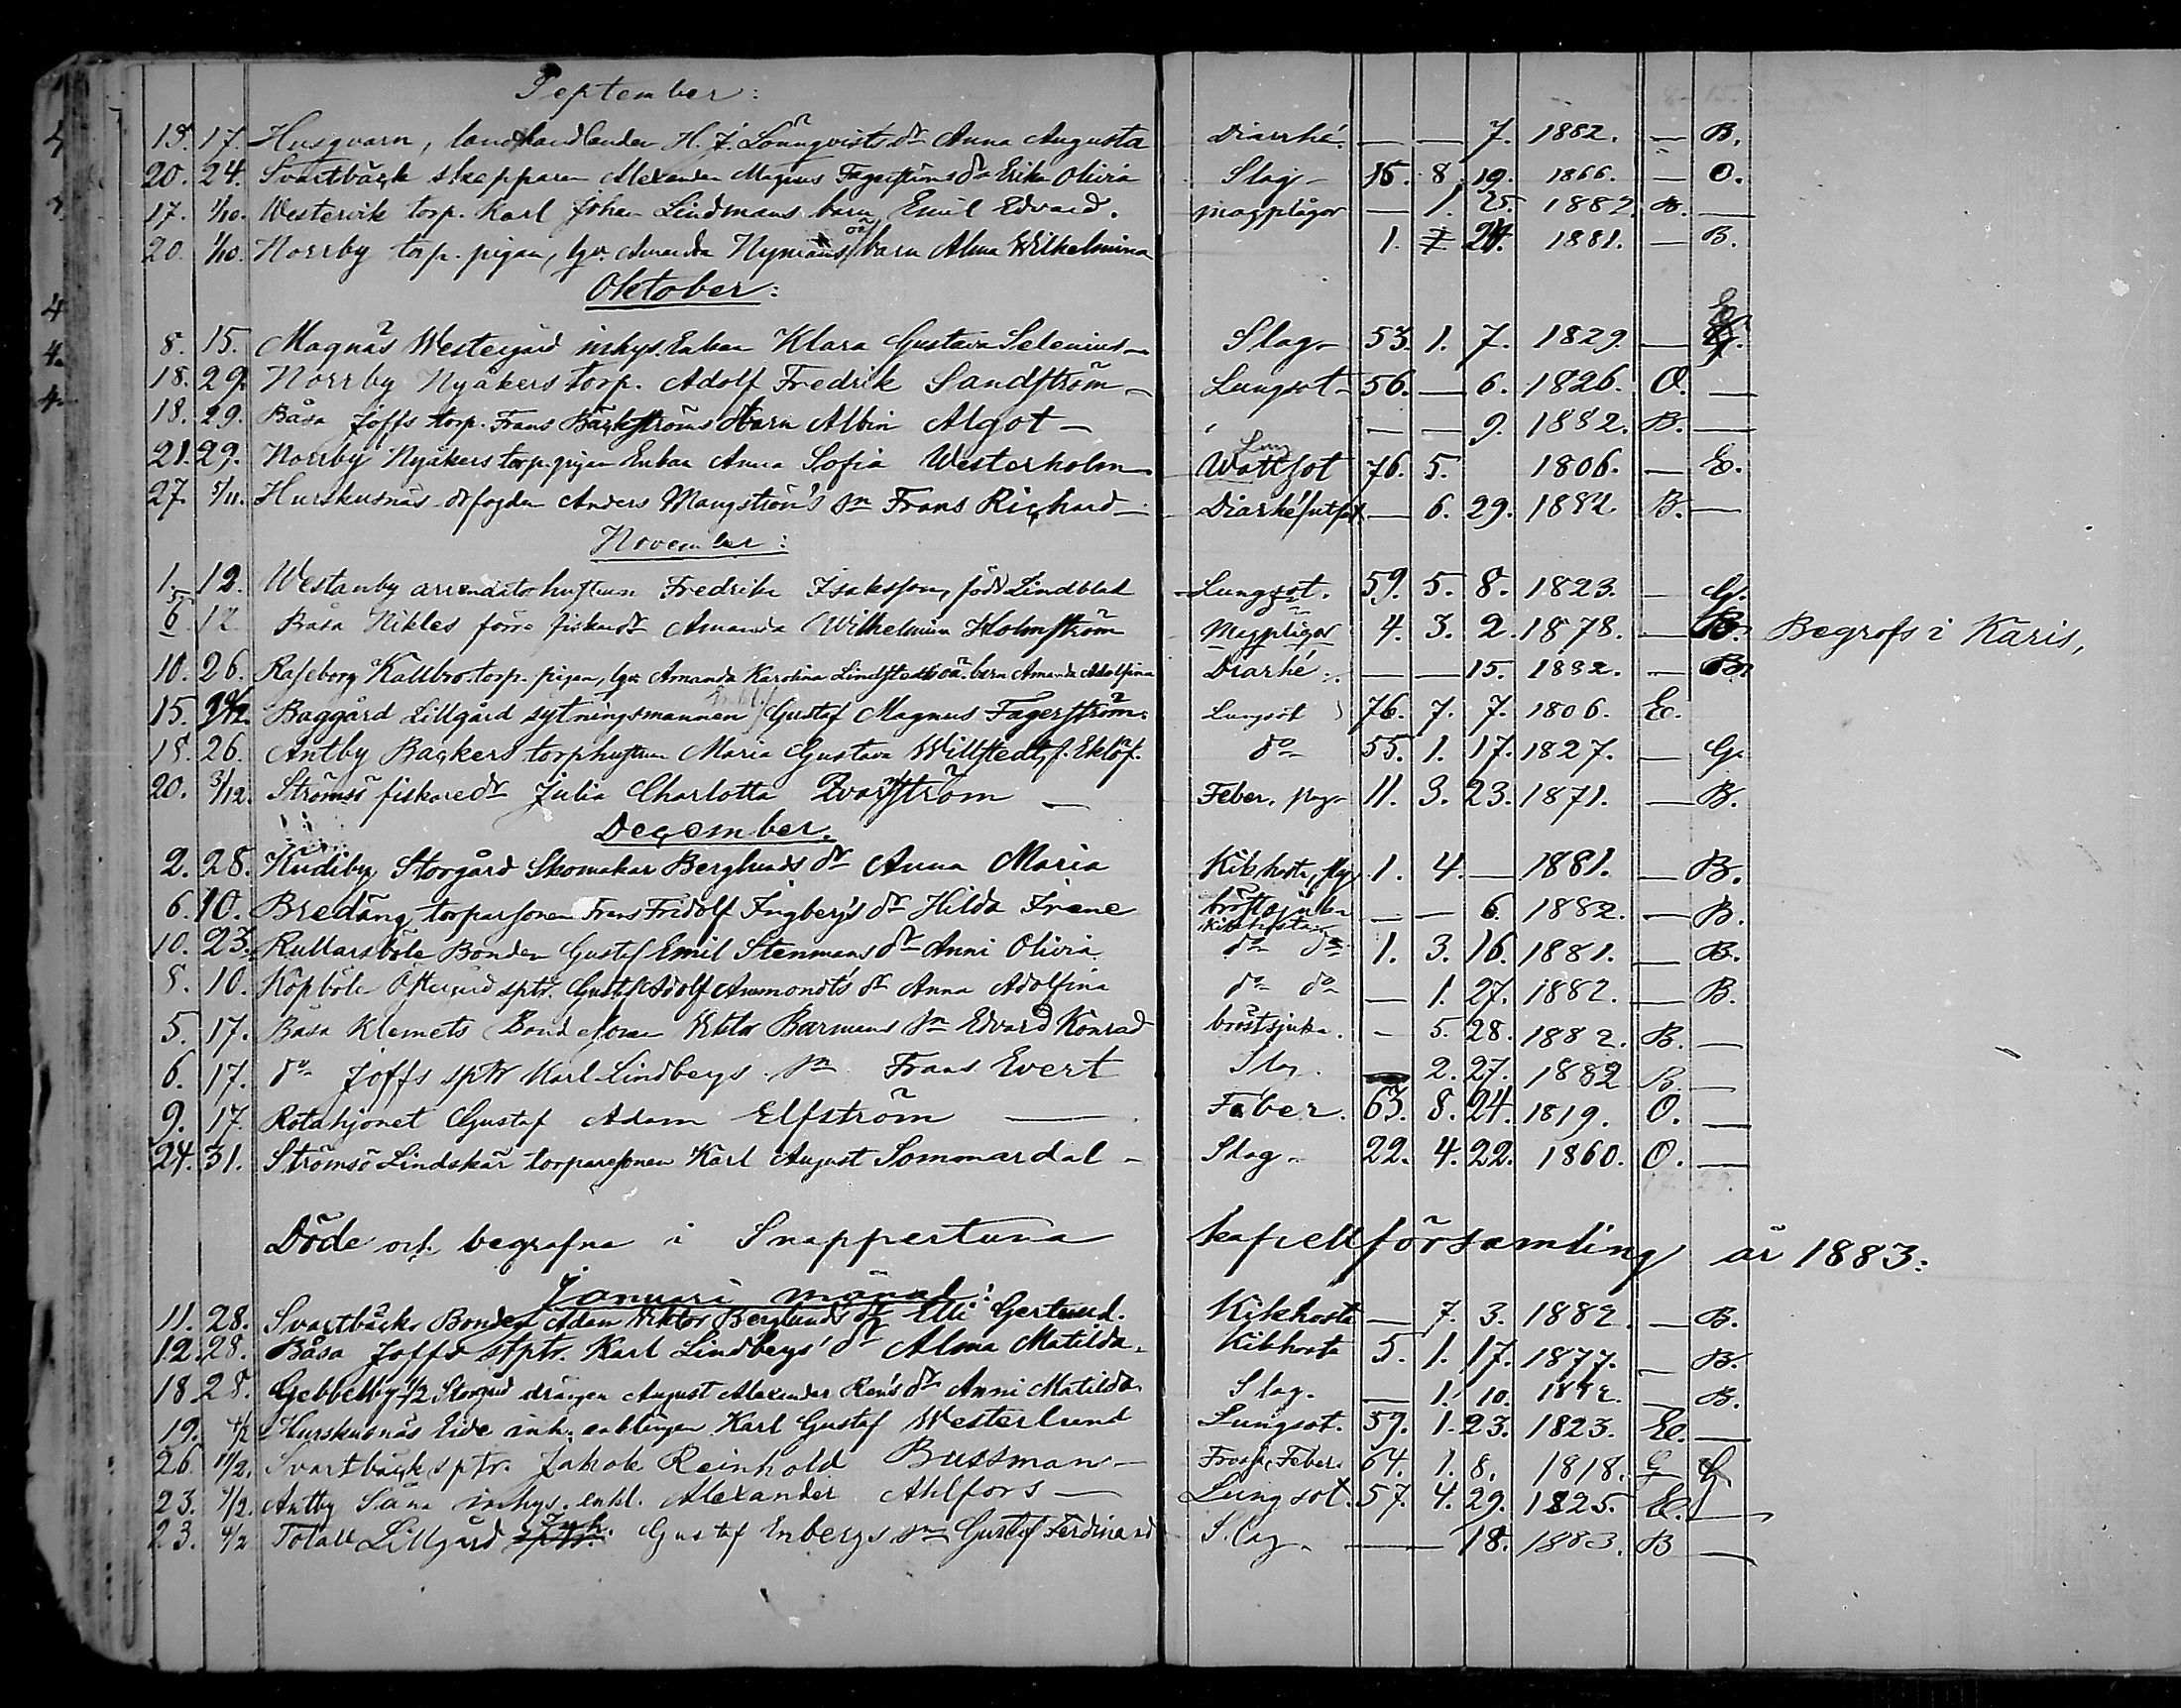 September:
13. 17. Husqvarn, landthandlanden H. J. Lönnqvists dr Anna Augusta Diarrhé. — — 7. 1882. — B.
20. 24. Svartbäck skepparen Alexander Magnus Fagerströms dr Erika Olivia Slag 15. 8. 19. 1866. — O.
17. 1/10. Westervik torp. Karl Johan Lindmans barn Emil Edvard. magplågor — 1. 25. 1882. B. —
20. 1/10. Norrby torp. pigan, lgr. Amanda Nymans oä barn Alma Wilhelmina 1. 7. 24. 1881. — B.
Oktober:
8. 15. Magnäs Westergård inhys. Enkan Klara Gustava Selenius Slag 53. 1. 7. 1829. — E.
18. 29. Norrby Nyåkers torp. Adolf Fredrik Sandström Lungsot 56. — 6. 1826. O. —
18. 29. Båsa Joffs torp. Frans Bäckströms barn Albin Algot — — — 9. 1882. B. —
21. 29. Norrby Nyåkers torp. pigan Enkan Anna Sofia Westerholm Lung Wattsot 76. 5. 1806. — E.
27. 5/11. Hurskusnäs fogden Anders Mangström's sn Frans Richard — Diarhé — 6. 29. 1882. B. —
November:
1. 12. Westanby arrendatohustrun Fredrika Isaksson, född Lindblad Lungsot. 59. 5. 8. 1823. — G.
6 12 Båsa Nikles förre fiskardr Amanda Wilhelmina Holmström Magplågor 4. 3. 2. 1878. — B. Begrofs i Karis,
10. 26. Raseborg Kallbro torp. pigan, lgr Amanda Karolina Lindstedts oä. barn Amanda Adolfina Diarhé. — — 15. 1882. — B.
15. Baggård Lillgård sytningsmannen Gustaf Magnus Fagerström Lungsot 76. 7. 7. 1806. E.
18. 26. Antby Backers torphustrun Maria Gustava Willstedt, f. Eklöf. do 55. 1. 17. 1827. — G.
20. 3/12. Strömsö fiskaredr Julia Charlotta Qvarnström — Feber, 11. 3. 23. 1871. — B.
December.
2. 28. Kudiby Storgård Skomakar Berglunds dr Anna Maria Kikhosta, 1. 4. — 1881. — B.
6. 10. Bredäng torparsonen Frans Fridolf Ingberg's dr Hilda Irene bröstsjuka kikhosta — — 6. 1882. — B.
10. 23. Rullarsböle Bonden Gustaf Emil Stenmans dr Anni Olivia do do 1. 3. 16. 1881. — B.
8. 10. Köpböle Östergård sptr. Gustaf Adolf Ammondts dr Anna Adolfina do do — 1. 27. 1882. — B.
5. 17. Båsa Klemets Bondesonen Viktor Barmans sn Edvard Konrad bröstsjuka. — 5. 28. 1882. B. —
6. 17. do Joffs sptr Karl Lindbergs sn Frans Evert Slag. 2. 27. 1882 B. —
9. 17. Rotehjonet Gustaf Adam Elfström — Feber. 63. 8. 24. 1819. O. —
24. 31. Strömsö Lindskär torparesonen Karl August Sommardal — Slag. 22. 4. 22. 1860. O. —
Döde och begrafne i Snappertuna kapellförsamling år 1883:
Januari månad:
11. 28. Svartbäcks Bonden Adam Viktor Berglunds dr Elli Gertrud. Kikhosta — 7. 3. 1882. — B.
12. 28. Båsa Joffs stptr. Karl Lindbergs' dr Alma Matilda. Kikhosta 5. 1. 17. 1877. — B.
18. 28. Gebbelby 1/2 Storgård drängen August Alexander Rens dr Anni Matilda Slag. — 1. 10. 1882. — B.
19. 4/2 Hurskusnäs Eide inh. enklingen Karl Gustaf Westerlund Lungsot. 59. 1. 23. 1823. E. —
26. 11/2. Svartbäck sptr. Jakob Reinhold Bussman — Feber 64. 1. 8. 1818. G G
23. 4/2. Antby Såna inhys. enkl. Alexander Ahlfors — Lungsot. 57. 4. 29. 1825. E. —
23. 4/2 Totall Lillgård Inh. Gustaf Enbergs sn Gustaf Ferdinand Slag. — 18. 1883. B —